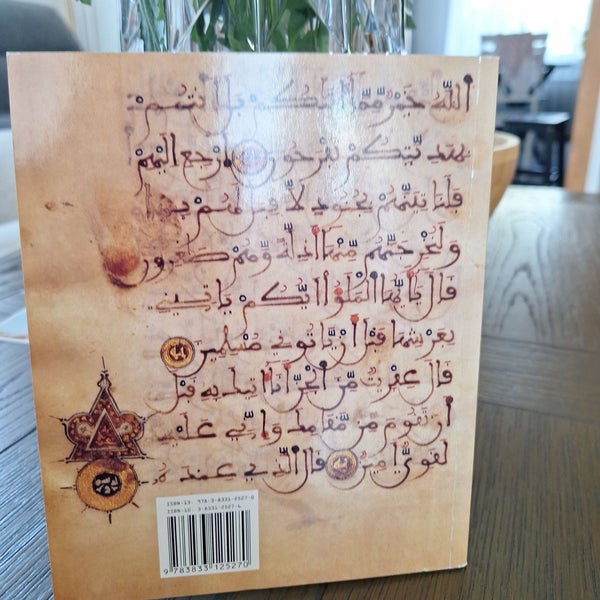 اللَّهُ خَيْرٌ مِّمَّا أَاتَيٰكُم بَلْ أَنتُم
بِهَدِيَّتِكُمْ تَفْرَحُونَ ارْجِعْ إِلَيْهِمْ
فَلَنَأْتِيَنَّهُم بِجُنُودٍ لَّا قِبَلَ لَهُم بِهَا
وَلَنُخْرِجَنَّهُم مِّنْهَا أَذِلَّةً وَهُمْ صَٰغِرُونَ
قَالَ يَٰأَيُّهَا الْمَلَؤُا أَيُّكُمْ يَأْتِينِي
بِعَرْشِهَا قَبْلَ أَنْ يَّأْتُونِي مُسْلِمِينَ
قَالَ عِفْرِيتٌ مِّنَ الْجِنِّ أَنَا أَاتِيكَ بِهِ قَبْلَ
أَن تَقُومَ مِن مَّقَامِكَ وَإِنِّي عَلَيْهِ
لَقَوِيٌّ أَمِينٌ قَالَ الَّذِي عِندَهُ
ISBN-13: 978-3-8331-2527-0
ISBN-10: 3-8331-2527-6
9 783833 125270